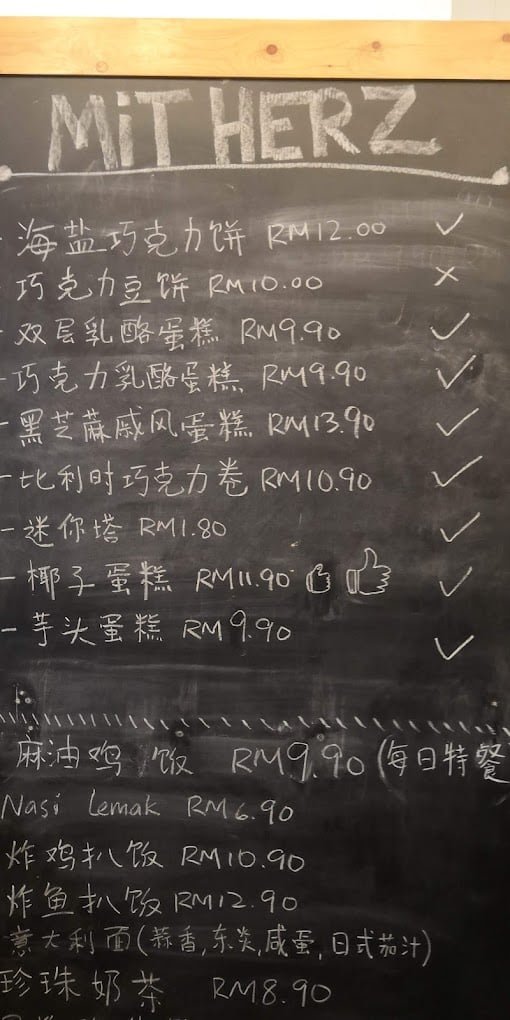 MiT HERZ
- 海盐巧克力饼 RM12.00 ✓
巧克力豆饼 RM10.00 ×
- 双层乳酪蛋糕 RM9.90 ✓
- 巧克力乳酪蛋糕 RM9.90 ✓
- 黑芝蔴戚风蛋糕 RM13.90 ✓
- 比利时巧克力卷 RM10.90 ✓
- 迷你塔 RM1.80 ✓
- 椰子蛋糕 RM11.90 ✓
- 芋头蛋糕 RM9.90 ✓
麻油鸡饭 RM9.90 (每日特餐
Nasi Lemak RM6.90
炸鸡扒饭 RM10.90
炸鱼扒饭 RM12.90
意大利面(蒜香,东炎,咸蛋,日式茄汁)
珍珠奶茶 RM8.90